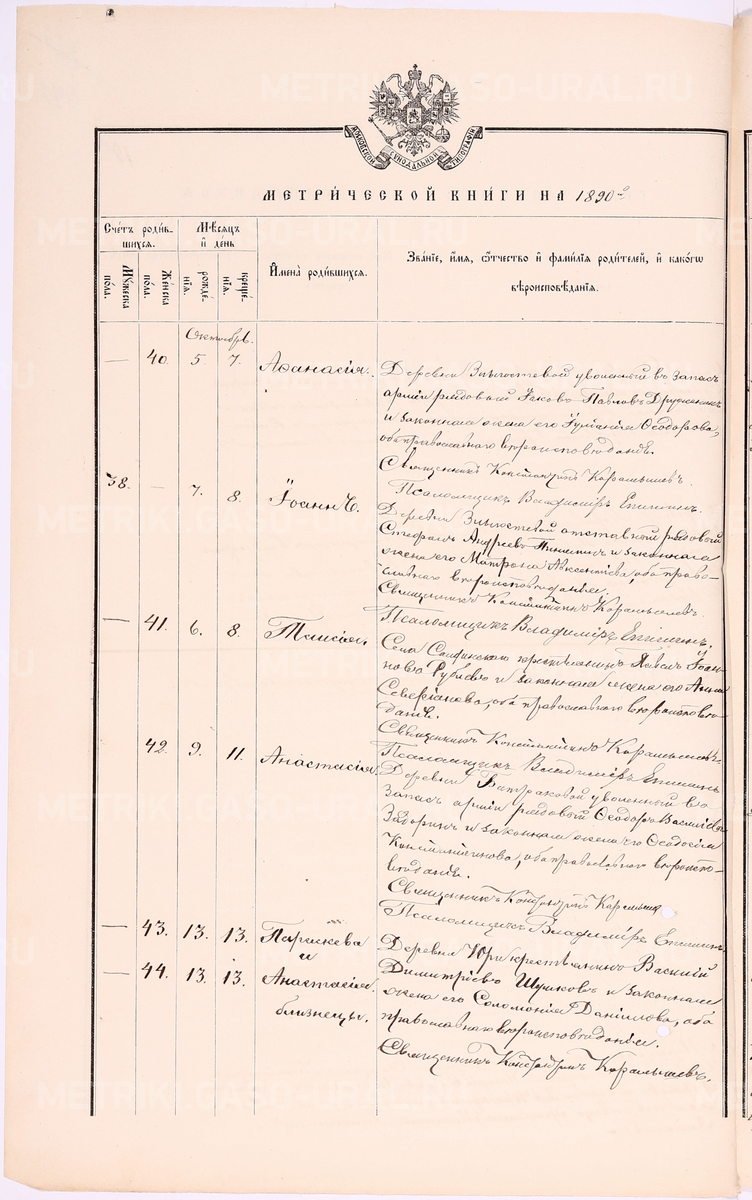 МОСКОВСКОЙ СѴНОДАЛЬНОЙ ТИПОГРАФІИ
МЕТРИ́ЧЕСКОЙ КНИ́ГИ НА 1890 го
Сче́тъ роди́в-
шихся.
Мѣсяцъ
и де́нь
Му́жеска
по́ла.
Же́нска
по́ла.
рожде́-
нія.
креще́-
нія.
Имена̀ роди́вшихся.
Зва́ніе, и́мя, ѻ҆́тчество и҆ фами́лія роди́телей, и҆ како́гѡ
вѣроисповѣ́данія.
Октябрь.
— 40. 5. 7. Аѳанасія.
Деревни уволенный въ запасъ
арміи рядовой Іаковъ Павловъ
и законная жена его Ѳеодорова,
оба православнаго вѣроисповѣданія.
Священникъ Константинъ Карамышевъ.
Псаломщикъ Владиміръ Епишинъ.
38. — 7. 8. Іоаннъ.
Деревни отставной рядовой
Стефанъ Андреевъ и законная
жена его Матрона Авксентіева, оба право-
славнаго вѣроисповѣданія.
Священникъ Константинъ Карамышевъ.
Псаломщикъ Владиміръ Епишинъ.
— 41. 6. 8. Таисія.
Села крестьянинъ Павелъ Іоан-
новъ и законная жена его Анна
Северіанова, оба православнаго вѣроисповѣ-
данія.
Священникъ Константинъ Карамышевъ.
Псаломщикъ Владиміръ Епишинъ
42. 9. 11. Анастасія.
Деревни Батраковой уволенный въ
запасъ арміи рядовой Ѳеодоръ Василіевъ
Задоринъ и законная жена его Ѳеодосія
Константинова, оба православнаго вѣроиспо-
вѣданія.
Священникъ Константинъ Карамышевъ
Псаломщикъ Владиміръ Епишинъ.
— 43. 13. 13. Параскева
и
— 44. 13. 13. Анастасія
близнецы.
Деревни крестьянинъ Василій
Димитріевъ Шушковъ и законная
жена его Соломонія Даніилова, оба
православнаго вѣроисповѣданія.
Священникъ Константинъ Карамышевъ.
METRIKI.GASO-URAL.RU